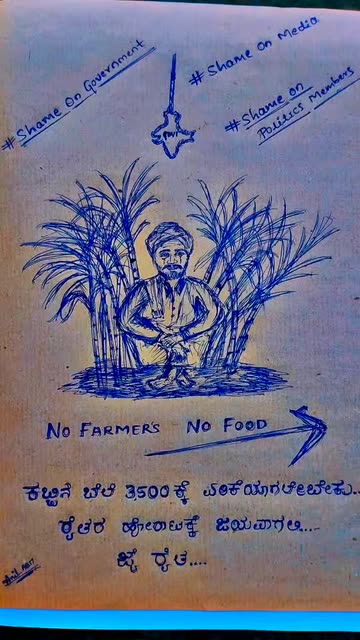 #Shame On Government
#Shame on Media
#Shame on
Politics Members
NO FARMERS NO FOOD
ಕಬ್ಬಿನ ಬೆಲೆ 3500 ಕ್ಕೆ ಏರಿಕೆಯಾಗಲೇಬೇಕು..
ರೈತರ ಹೋರಾಟಕ್ಕೆ ಜಯವಾಗಲಿ....
ಜೈ ರೈತ....